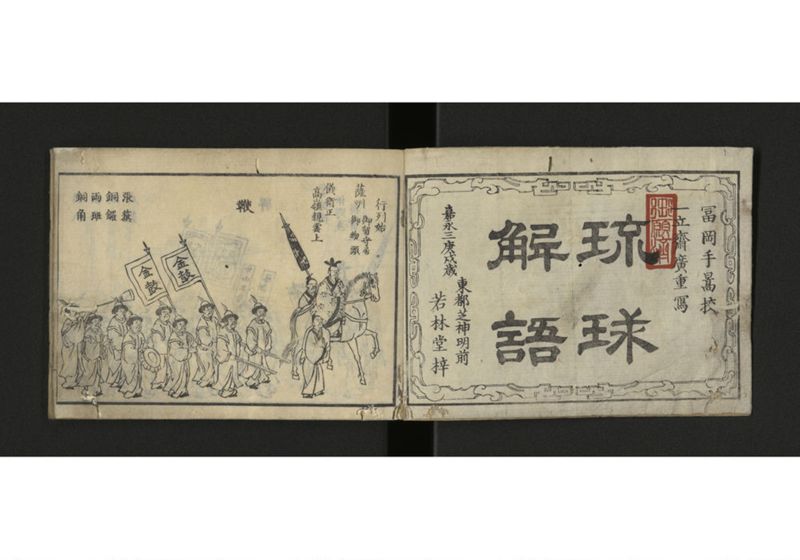 冨岡手暠挍
一立齋廣重寫
琉球
解語
嘉永三庚戌歳
東都芝神明前
若林堂梓
行列始
薩州
御留守居
御物頭
儀衛正
高嶺親雲上
鞭
金鼓
金鼓
張籏
銅鑼
兩班
銅角